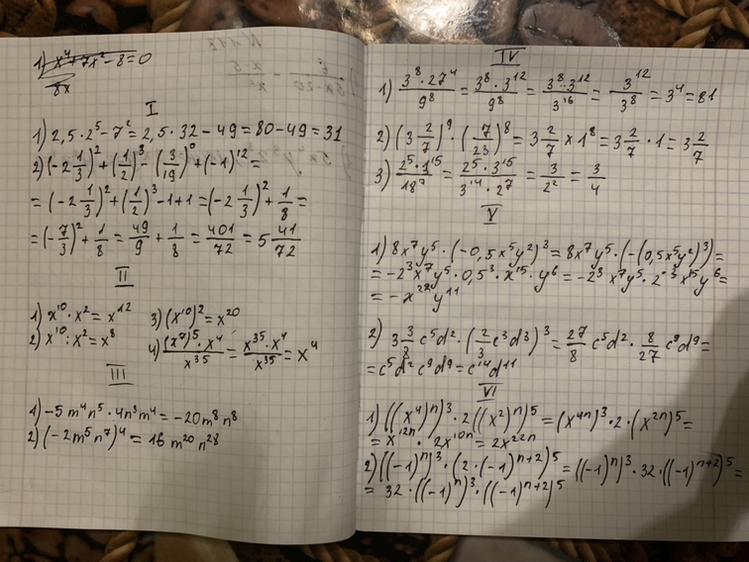 1) x⁴+7x²-8=0
8x
I
1) 2,5·2⁵-7²=2,5·32-49=80-49=31
2) (-2 1/3)²+(1/2)³-(3/19)⁰+(-1)¹²=
=(-2 1/3)²+(1/2)³-1+1=(-2 1/3)²+1/8=
=(-7/3)²+1/8=49/9+1/8=401/72=5 41/72
II
1) x¹⁰·x²=x¹² 3) (x¹⁰)²=x²⁰
2) x¹⁰:x²=x⁸ 4) (x⁷)⁵·x⁴/x³⁵=x³⁵·x⁴/x³⁵=x⁴
III
1) -5m⁴n⁵·4n³m⁴=-20m⁸n⁸
2) (-2m⁵n⁷)⁴=16m²⁰n²⁸
IV
1) 3⁸·27⁴/9⁸=3⁸·3¹²/9⁸=3⁸·3¹²/3¹⁶=3¹²/3⁸=3⁴=81
2) (3 2/7)⁹·(7/23)⁸=3 2/7×1⁸=3 2/7·1=3 2/7
3) 2⁵·3¹⁵/18⁷=2⁵·3¹⁵/3¹⁴·2⁷=3/2²=3/4
V
1) 8x⁷y⁵·(-0,5x⁵y²)³=8x⁷y⁵·(-(0,5x⁵y²)³)=
=-2³x⁷y⁵·0,5³·x¹⁵·y⁶=-2³x⁷y⁵·2⁻³x¹⁵y⁶=
=-x²²y¹¹
2) 3 3/8c⁵d²·(2/3c³d³)³=27/8c⁵d²·8/27c⁹d⁹=
=c⁵d²c⁹d⁹=c¹⁴d¹¹
VI
1) ((x⁴)ⁿ)³·2((x²)ⁿ)⁵=(x⁴ⁿ)³·2·(x²ⁿ)⁵=
=x¹²ⁿ·2x¹⁰ⁿ=2x²²ⁿ
2) ((-1)ⁿ)³·(2·(-1)ⁿ⁺²)⁵=((-1)ⁿ)³·32·((-1)ⁿ⁺²)⁵=
=32·((-1)ⁿ)³·((-1)ⁿ⁺²)⁵